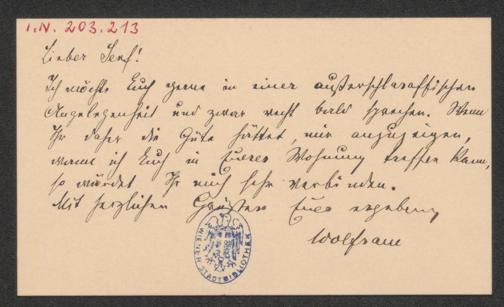 I.N. 203.213
Lieber Senf!
Ich möchte Euch gerne in einer außerschlaraffischen
Angelegenheit und zwar recht bald sprechen. Wenn
Ihr daher die Güte hättet, mir anzuzeigen,
wann ich Euch in Eurer Wohnung treffen kann,
so würdet Ihr mich sehr verbinden.
Mit herzlichen Grüßen Euer ergebener
Wolfram
WIENER STADTBIBLIOTHEK